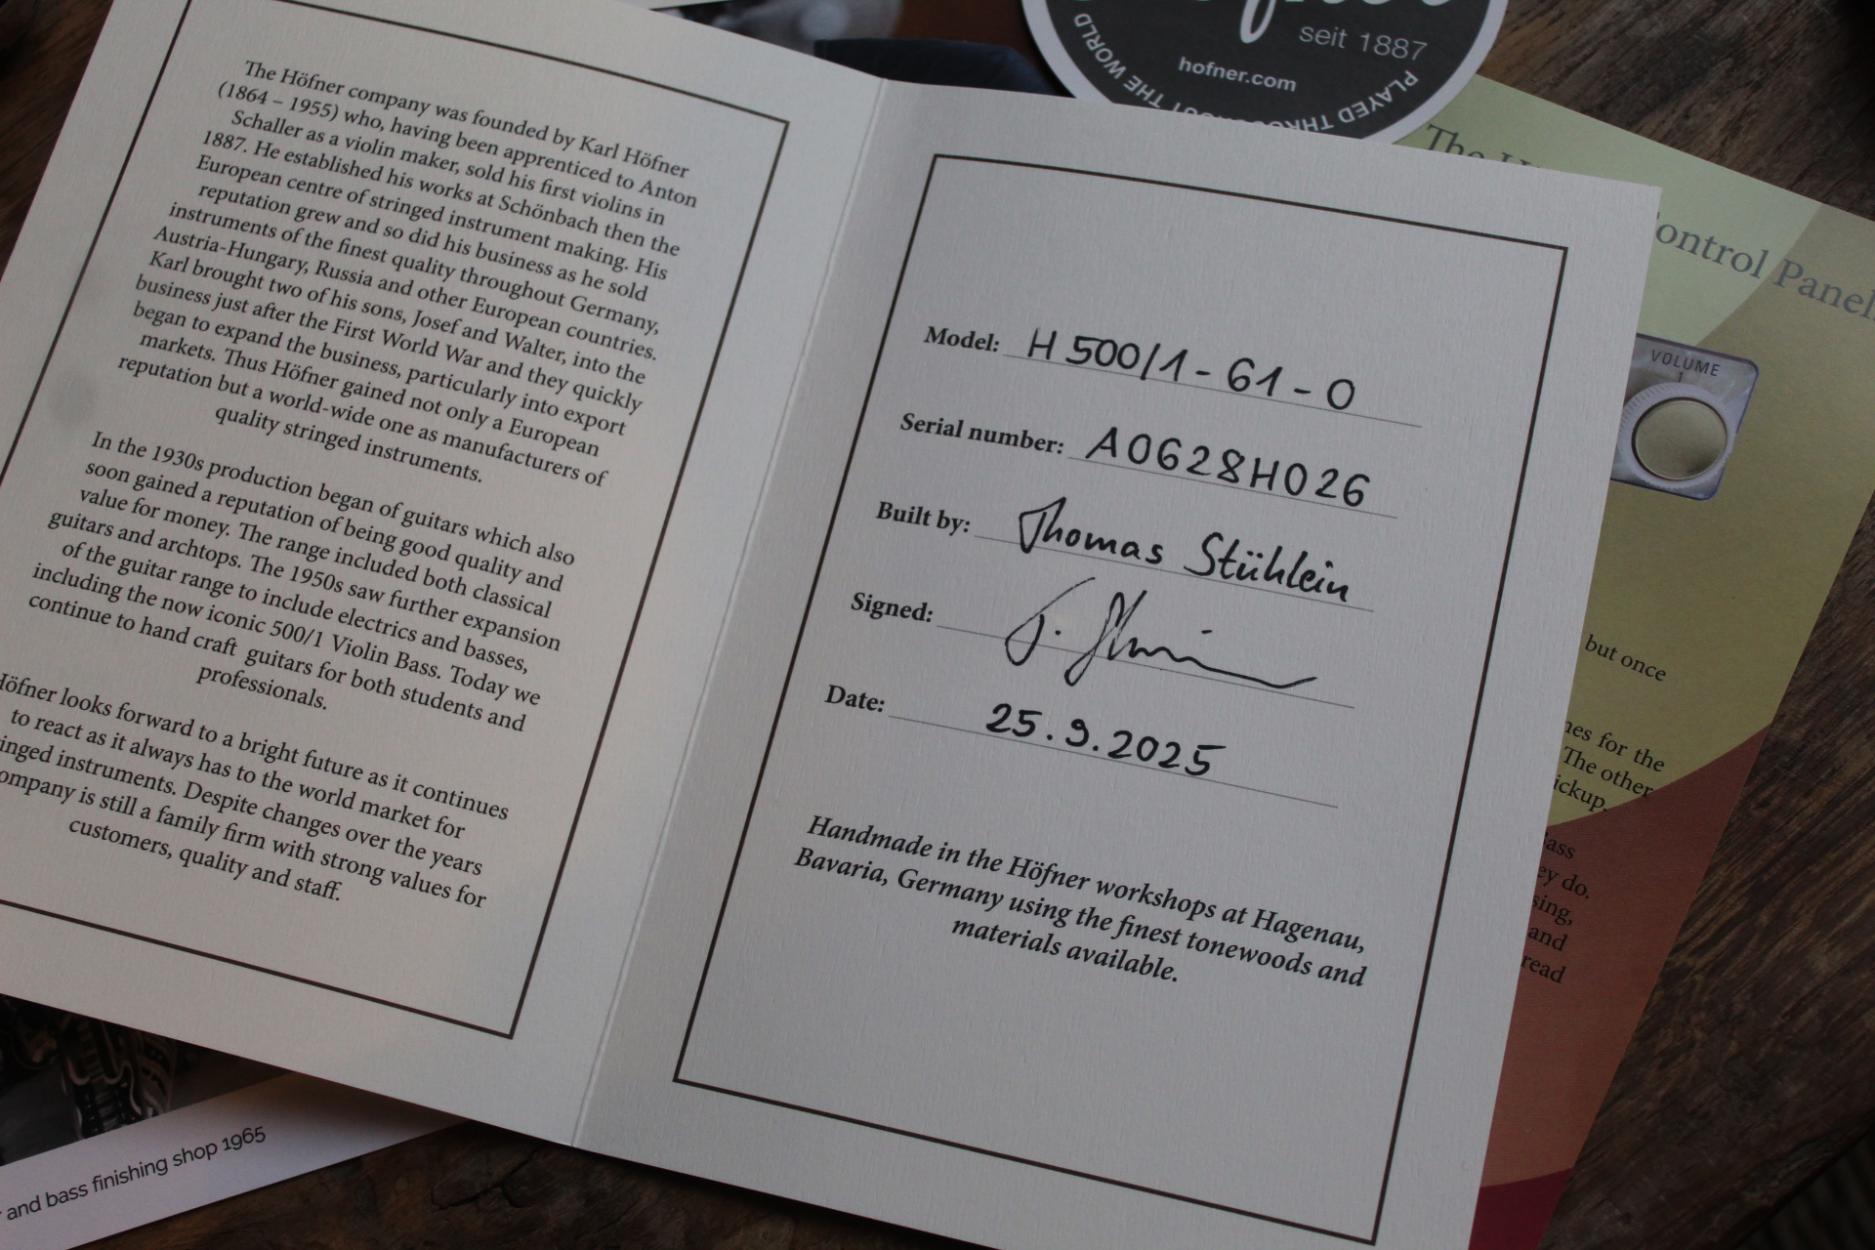 The Höfner company was founded by Karl Höfner
(1864 – 1955) who, having been apprenticed to Anton
Schaller as a violin maker, sold his first violins in
1887. He established his works at Schönbach then the
European centre of stringed instrument making. His
reputation grew and so did his business as he sold
instruments of the finest quality throughout Germany,
Austria-Hungary, Russia and other European countries.
Karl brought two of his sons, Josef and Walter, into the
business just after the First World War and they quickly
began to expand the business, particularly into export
markets. Thus Höfner gained not only a European
reputation but a world-wide one as manufacturers of
quality stringed instruments.
In the 1930s production began of guitars which also
soon gained a reputation of being good quality and
value for money. The range included both classical
guitars and archtops. The 1950s saw further expansion
of the guitar range to include electrics and basses,
including the now iconic 500/1 Violin Bass. Today we
continue to hand craft guitars for both students and
professionals.
Höfner looks forward to a bright future as it continues
to react as it always has to the world market for
inged instruments. Despite changes over the years
ompany is still a family firm with strong values for
customers, quality and staff.
Model: H 500/1 - 61 - 0
Serial number: A0628H026
Built by: Thomas Stühlein
Signed:
Date: 25.9.2025
Handmade in the Höfner workshops at Hagenau,
Bavaria, Germany using the finest tonewoods and
materials available.
seit 1887
hofner.com
PLAYED THROUGHOUT THE WORLD
The
ontrol Panel
VOLUME
1
but once
nes for the
The other
ickup.
ass
ey do.
sing,
and
read
and bass finishing shop 1965